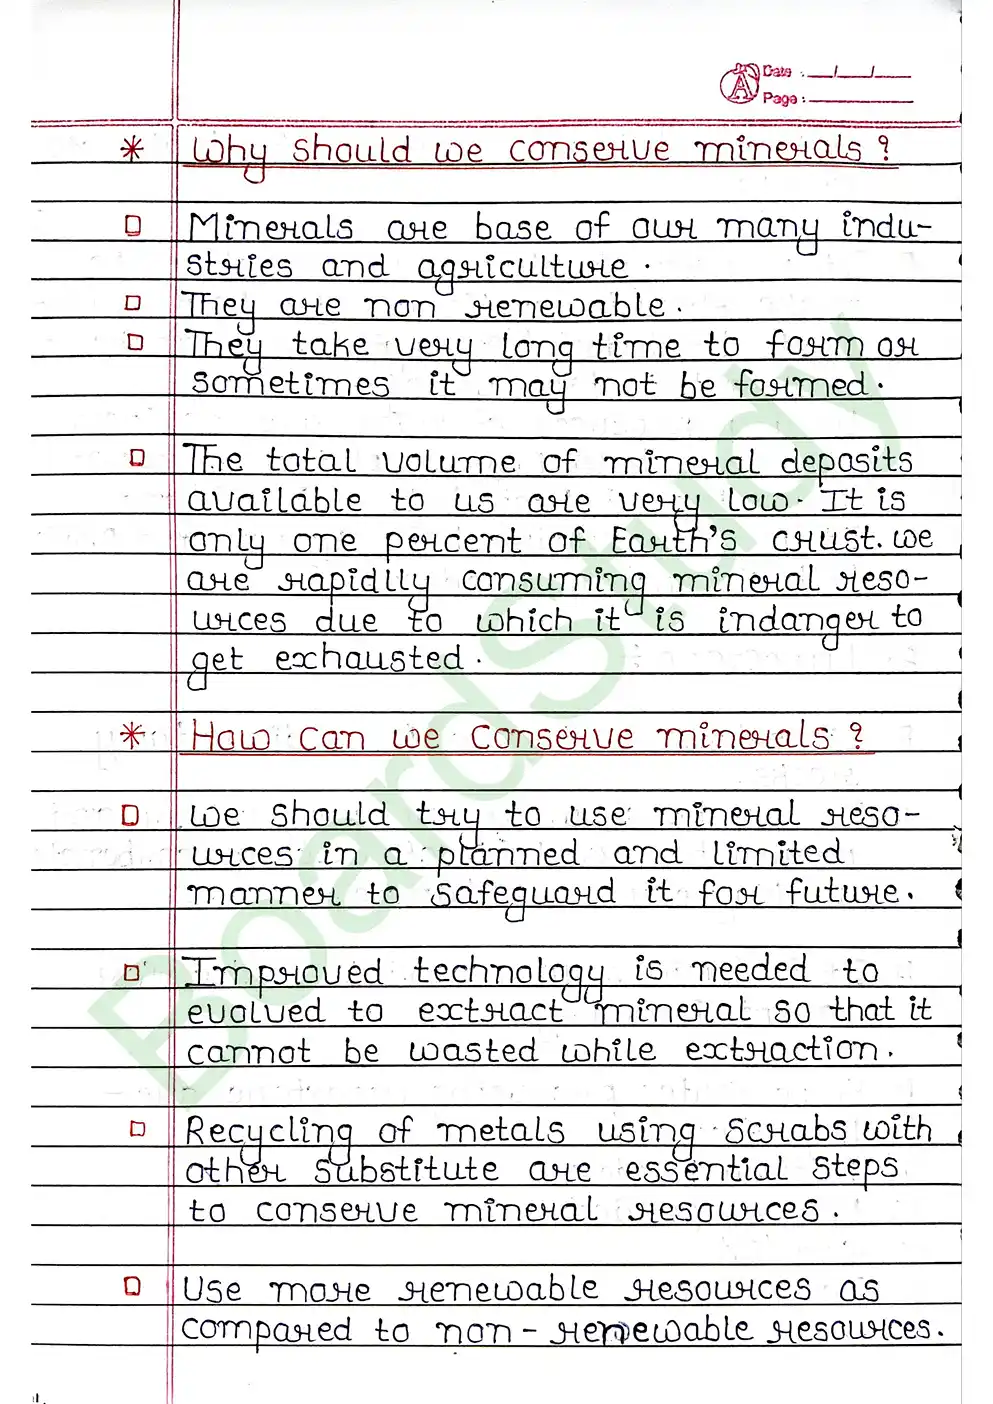 Date : __/__/__
Page :
* Why should we conserve minerals ?
□ Minerals are base of our many indu-
stries and agriculture .
□ They are non renewable .
□ They take very long time to form or
sometimes it may not be formed .
□ The total volume of mineral deposits
available to us are very low . It is
only one percent of Earth's crust. we
are rapidlly consuming mineral reso-
urces due to which it is indanger to
get exhausted .
* How can we conserve minerals ?
□ We should try to use mineral reso-
urces in a planned and limited
manner to safeguard it for future .
□ Improved technology is needed to
evolved to extract mineral so that it
cannot be wasted while extraction .
□ Recycling of metals using scrabs with
other substitute are essential steps
to conserve mineral resources .
□ Use more renewable resources as
compared to non - renewable resources .
BoardStudy